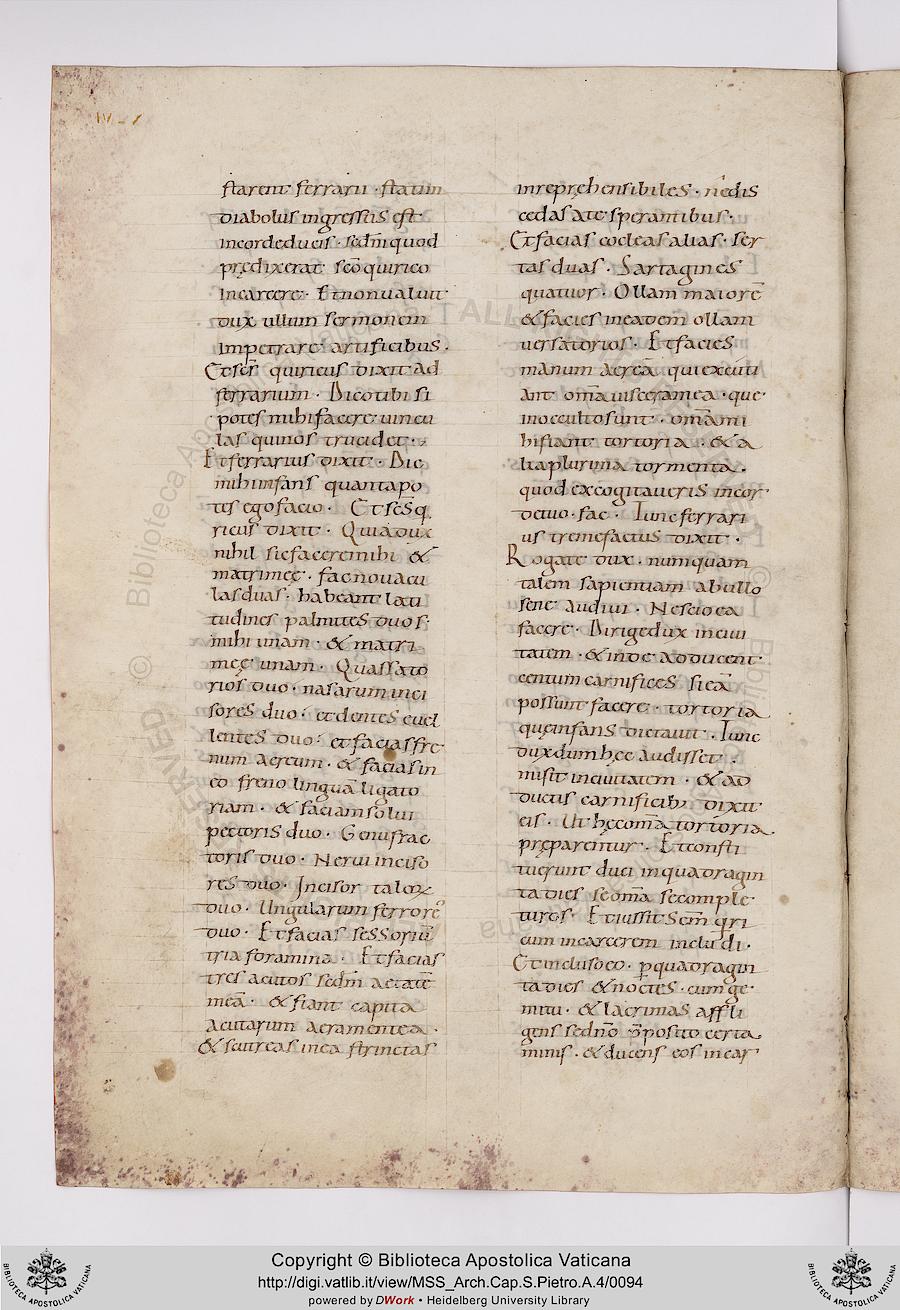 IV-1
starent ferrarii · statim
diabolus ingressus est
incordeducis · sedm̄quod
prędixerat sc̄o quirico
incarcere · Etnonualuit
dux ullum sermonem
impetrare artificibus ·
Etsc̄s quiricus dixit ad
ferrarium · Dicotibi si
potes mihifacere uincu
las quinos trucidet ·
Etferrarius dixit · Dic
mihiinfans quantapo
tes egofacio · Etsc̄sq
ricus dixit · Quiadux
nihil sicfaceremihi &
matrimeę · facnouacu
lasduas · habeant lati
tudines palmites duos ·
mihi unam · & matri
meę unam · Quassato
rios duo · nasarum inci
sores duo · et dentes euel
lentes duo · et faciasfre
num aereum · & facias in
eo freno linguā ligato
riam · & faciam solui
pectoris duo · Genufrac
toris duo · Nerui inciso
res duo · Incisor talox
duo · Ungularum ferrore
duo · Etfacias sessoriū
tria foramina · Etfacias
tres acutos sedm̄ aetatē
meā · & fiant capita
acutarum aeramentea ·
& scutreas inea strinctas
inreprehensibiles · nedis
cedas ate sperantibus ·
Etfacias cocleas alias · ser
tas duas · Sartagines
quatuor · Ollam maiorē
& facies ineadem ollam
uersatorios · Etfacies
manum aereā quiexcuti
ant om̄a uisceramea · que
inoccultosunt · om̄ami
hifiant tortoria · & a
liaplurima tormenta ·
quod excogitaueris incor
detuo · fac · Tuncferrari
us tremefactus dixit ·
Rogate dux · numquam
talem sapientiam abullo
sene audiui · Nescio ea
facere · Dirigedux inciui
tatem · & inde adducent
centum carnifices sicā
possunt facere · tortoria
queinfans dictauit · Tunc
duxdum hęc audisset ·
misit inciuitatem · & ad
ductis carnificib; dixit
eis · Ut hęcom̄a tortoria
prępararentur · Etconsti
tuerunt duci inquadragin
tadies seom̄a secomple
turos · Etiussit Sc̄m qri
cum incarcerem includi ·
Etinclusoeo · p̱quadragin
tadies & noctes · cumge
mitu · & lacrimas affli
gens sedn̄o p̄posito certa
minis · & ducens eos incar
Copyright © Biblioteca Apostolica Vaticana
http://digi.vatlib.it/view/MSS_Arch.Cap.S.Pietro.A.4/0094
powered by DWork • Heidelberg University Library
BIBLIOTECA APOSTOLICA VATICANA
BIBLIOTECA APOSTOLICA VATICANA